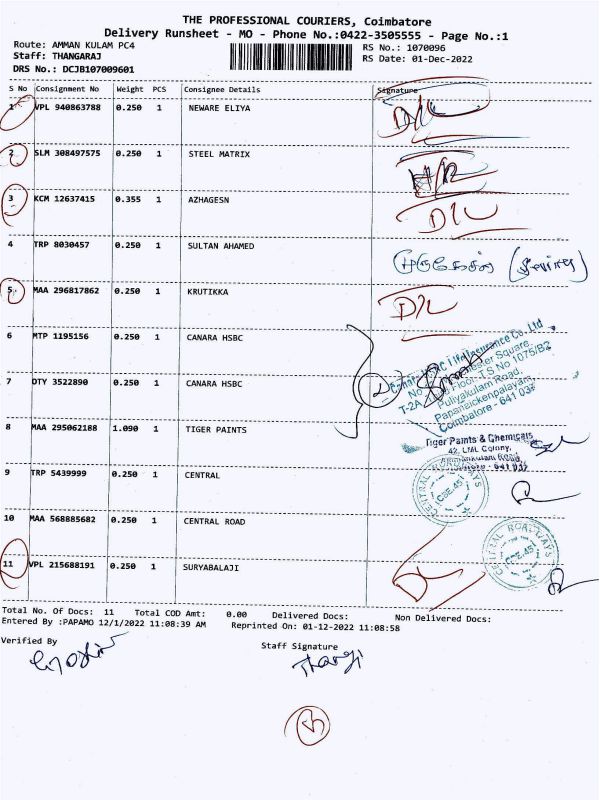 THE PROFESSIONAL COURIERS, Coimbatore
Delivery Runsheet - MO - Phone No.:0422-3505555 - Page No.:1
Route: AMMAN KULAM PC4 RS No.: 1070096
Staff: THANGARAJ RS Date: 01-Dec-2022
DRS No.: DCJB107009601
S No Consignment No Weight PCS Consignee Details Signature
1 VPL 940863788 0.250 1 NEWARE ELIYA
D/L
2 SLM 308497575 0.250 1 STEEL MATRIX
3 KCM 12637415 0.355 1 AZHAGESN
D/L
4 TRP 8030457 0.250 1 SULTAN AHAMED
5 MAA 296817862 0.250 1 KRUTIKKA
D/L
6 MTP 1195156 0.250 1 CANARA HSBC
7 DTY 3522890 0.250 1 CANARA HSBC
Life Insurance Co. Ltd
Square,
Floor, T.S No 1075/B2
Puliyakulam Road,
Papanaickenpalayam,
Coimbatore - 641 037
8 MAA 295062188 1.090 1 TIGER PAINTS
Tiger Paints & Chemicals
42, LML Colony,
Road,
641 037
9 TRP 5439999 0.250 1 CENTRAL
CENTRAL ROADWAYS
CBE.45
10 MAA 568885682 0.250 1 CENTRAL ROAD
CENTRAL ROADWAYS
CBE.45
11 VPL 215688191 0.250 1 SURYABALAJI
Total No. Of Docs: 11 Total COD Amt: 0.00 Delivered Docs: Non Delivered Docs:
Entered By :PAPAMO 12/1/2022 11:08:39 AM Reprinted On: 01-12-2022 11:08:58
Verified By Staff Signature